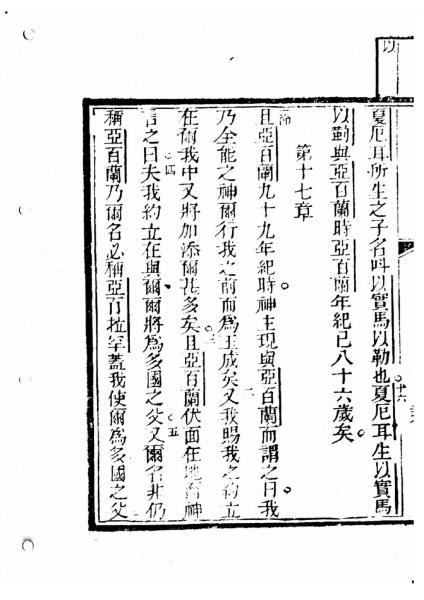 以
夏厄耳所生之子名呌以實馬以勒也十六夏厄耳生以實馬
以勒與亞百蘭時亞百蘭年紀已八十六歲矣
第十七章
節且亞百蘭九十九年紀時神主現與亞百蘭而謂之曰我
乃全能之神爾行我之前而為玉成矣二又我賜我之約立
在爾我中又將加添爾甚多矣三且亞百蘭伏面在地而神
言之曰四夫我約立在與爾爾將為多國之父五又爾名非仍
稱亞百蘭乃爾名必稱亞百拉罕蓋我使爾為多國之父